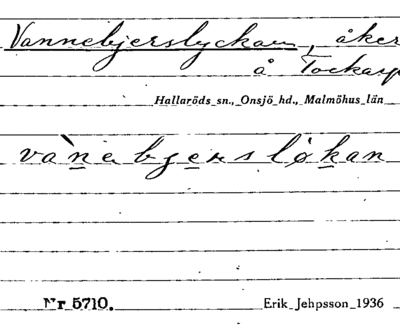 Vannebjerslyckan, åker
å Tockarp
Hallaröds sn., Onsjö hd., Malmöhus län
vànebjersløkan
Nr 5710.
Erik Jehpsson 1936